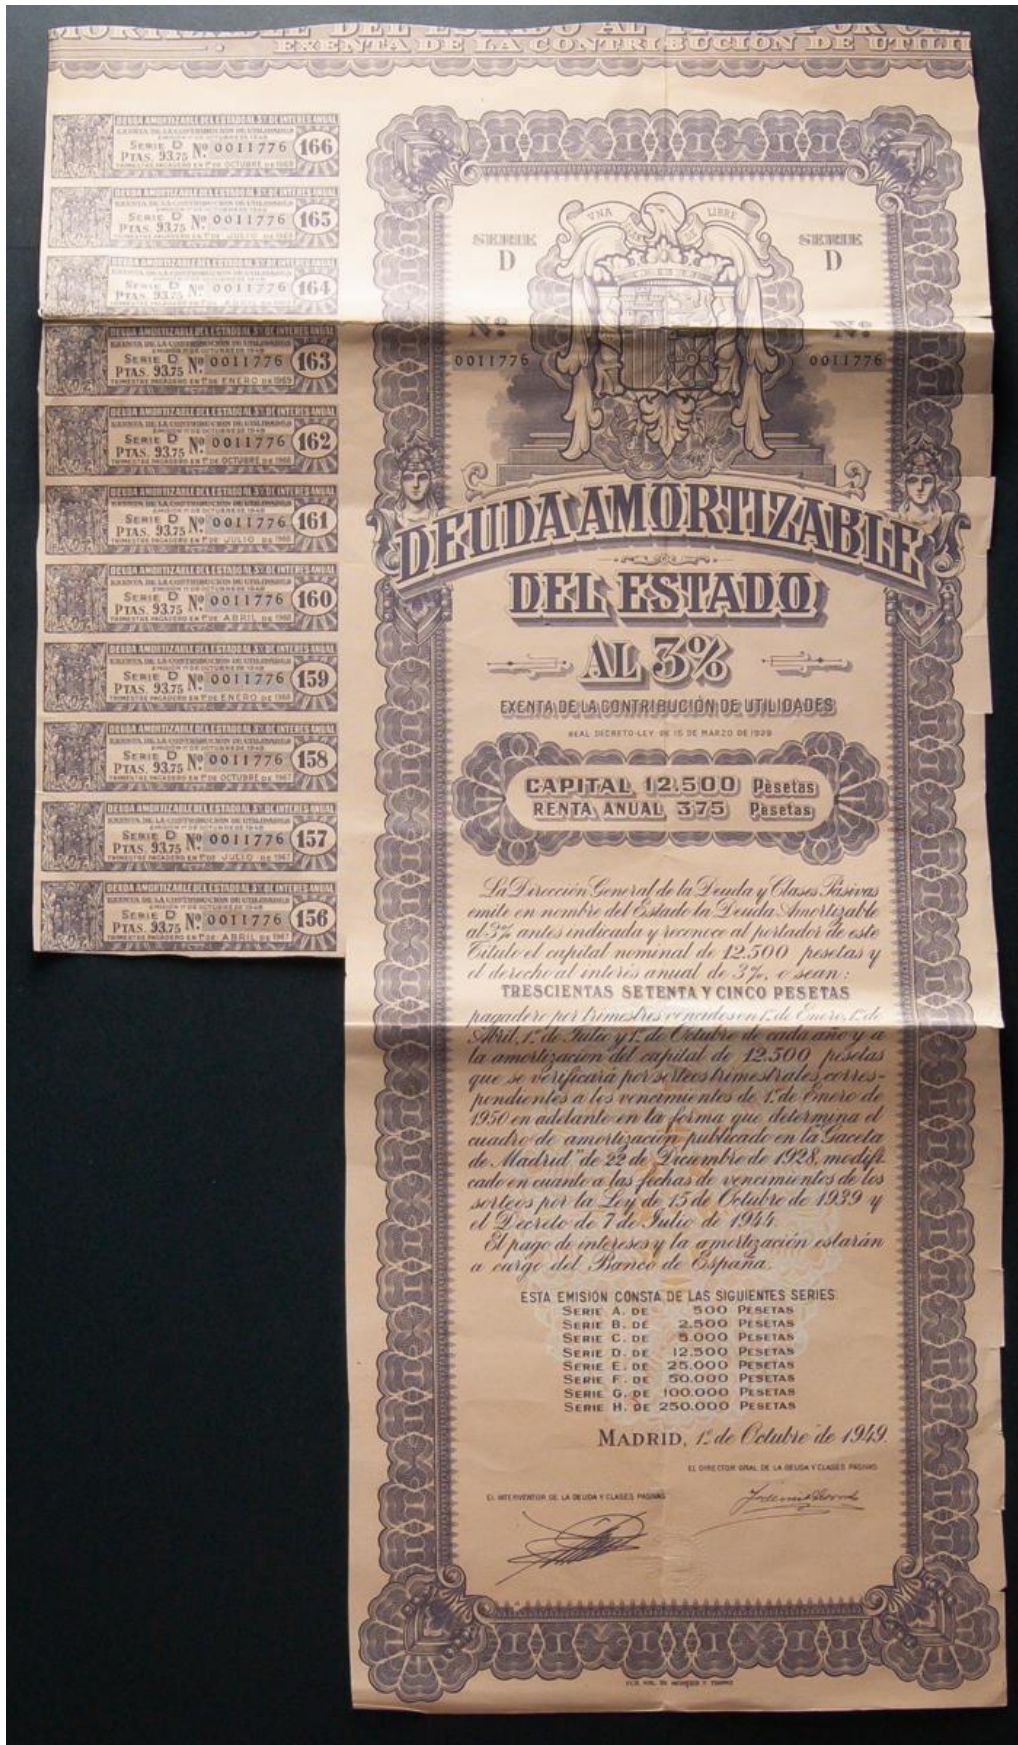 EXENTA DE LA CONTRIBUCIÓN DE UTILI
DEUDA AMORTIZABLE DEL ESTADO AL 3% DE INTERES ANUAL
EXENTA DE LA CONTRIBUCION DE UTILIDADES
SERIE D Nº 0011776 166
PTAS. 93.75
TRIMESTRE PAGADERO EN 1º DE OCTUBRE DE 1969
DEUDA AMORTIZABLE DEL ESTADO AL 3% DE INTERES ANUAL
EXENTA DE LA CONTRIBUCION DE UTILIDADES
SERIE D Nº 0011776 165
PTAS. 93.75
TRIMESTRE PAGADERO EN 1º DE JULIO DE 1969
DEUDA AMORTIZABLE DEL ESTADO AL 3% DE INTERES ANUAL
EXENTA DE LA CONTRIBUCION DE UTILIDADES
SERIE D Nº 0011776 164
PTAS. 93.75
TRIMESTRE PAGADERO EN 1º DE ABRIL DE 1969
DEUDA AMORTIZABLE DEL ESTADO AL 3% DE INTERES ANUAL
EXENTA DE LA CONTRIBUCION DE UTILIDADES
SERIE D Nº 0011776 163
PTAS. 93.75
TRIMESTRE PAGADERO EN 1º DE ENERO DE 1969
DEUDA AMORTIZABLE DEL ESTADO AL 3% DE INTERES ANUAL
EXENTA DE LA CONTRIBUCION DE UTILIDADES
SERIE D Nº 0011776 162
PTAS. 93.75
TRIMESTRE PAGADERO EN 1º DE OCTUBRE DE 1968
DEUDA AMORTIZABLE DEL ESTADO AL 3% DE INTERES ANUAL
EXENTA DE LA CONTRIBUCION DE UTILIDADES
SERIE D Nº 0011776 161
PTAS. 93.75
TRIMESTRE PAGADERO EN 1º DE JULIO DE 1968
DEUDA AMORTIZABLE DEL ESTADO AL 3% DE INTERES ANUAL
EXENTA DE LA CONTRIBUCION DE UTILIDADES
SERIE D Nº 0011776 160
PTAS. 93.75
TRIMESTRE PAGADERO EN 1º DE ABRIL DE 1968
DEUDA AMORTIZABLE DEL ESTADO AL 3% DE INTERES ANUAL
EXENTA DE LA CONTRIBUCION DE UTILIDADES
SERIE D Nº 0011776 159
PTAS. 93.75
TRIMESTRE PAGADERO EN 1º DE ENERO DE 1968
DEUDA AMORTIZABLE DEL ESTADO AL 3% DE INTERES ANUAL
EXENTA DE LA CONTRIBUCION DE UTILIDADES
SERIE D Nº 0011776 158
PTAS. 93.75
TRIMESTRE PAGADERO EN 1º DE OCTUBRE DE 1967
DEUDA AMORTIZABLE DEL ESTADO AL 3% DE INTERES ANUAL
EXENTA DE LA CONTRIBUCION DE UTILIDADES
SERIE D Nº 0011776 157
PTAS. 93.75
TRIMESTRE PAGADERO EN 1º DE JULIO DE 1967
DEUDA AMORTIZABLE DEL ESTADO AL 3% DE INTERES ANUAL
EXENTA DE LA CONTRIBUCION DE UTILIDADES
SERIE D Nº 0011776 156
PTAS. 93.75
TRIMESTRE PAGADERO EN 1º DE ABRIL DE 1967
UNA LIBRE
SERIE SERIE
D D
Nº Nº
0011776 0011776
DEUDA AMORTIZABLE
DEL ESTADO
AL 3%
EXENTA DE LA CONTRIBUCIÓN DE UTILIDADES
REAL DECRETO-LEY DE 15 DE MARZO DE 1928
CAPITAL 12.500 Pesetas
RENTA ANUAL 375 Pesetas
La Dirección General de la Deuda y Clases Pasivas
emite en nombre del Estado la Deuda Amortizable
al 3% antes indicada y reconoce al portador de este
Título el capital nominal de 12.500 pesetas y
el derecho al interés anual de 3%, o sean:
TRESCIENTAS SETENTA Y CINCO PESETAS
pagadero por trimestres vencidos en 1º de Enero, 1º de
Abril, 1º de Julio y 1º de Octubre de cada año y a
la amortización del capital de 12.500 pesetas
que se verificará por sorteos trimestrales, corres-
pondientes a los vencimientos de 1º de Enero de
1950 en adelante en la forma que determina el
cuadro de amortización publicado en la "Gaceta
de Madrid" de 22 de Diciembre de 1928, modifi-
cado en cuanto a las fechas de vencimientos de los
sorteos por la Ley de 15 de Octubre de 1939 y
el Decreto de 7 de Julio de 1944.
El pago de intereses y la amortización estarán
a cargo del Banco de España.
ESTA EMISIÓN CONSTA DE LAS SIGUIENTES SERIES:
SERIE A. DE 500 PESETAS
SERIE B. DE 2.500 PESETAS
SERIE C. DE 5.000 PESETAS
SERIE D. DE 12.500 PESETAS
SERIE E. DE 25.000 PESETAS
SERIE F. DE 50.000 PESETAS
SERIE G. DE 100.000 PESETAS
SERIE H. DE 250.000 PESETAS
MADRID, 1º de Octubre de 1949.
EL DIRECTOR GRAL. DE LA DEUDA Y CLASES PASIVAS
EL INTERVENTOR DE LA DEUDA Y CLASES PASIVAS